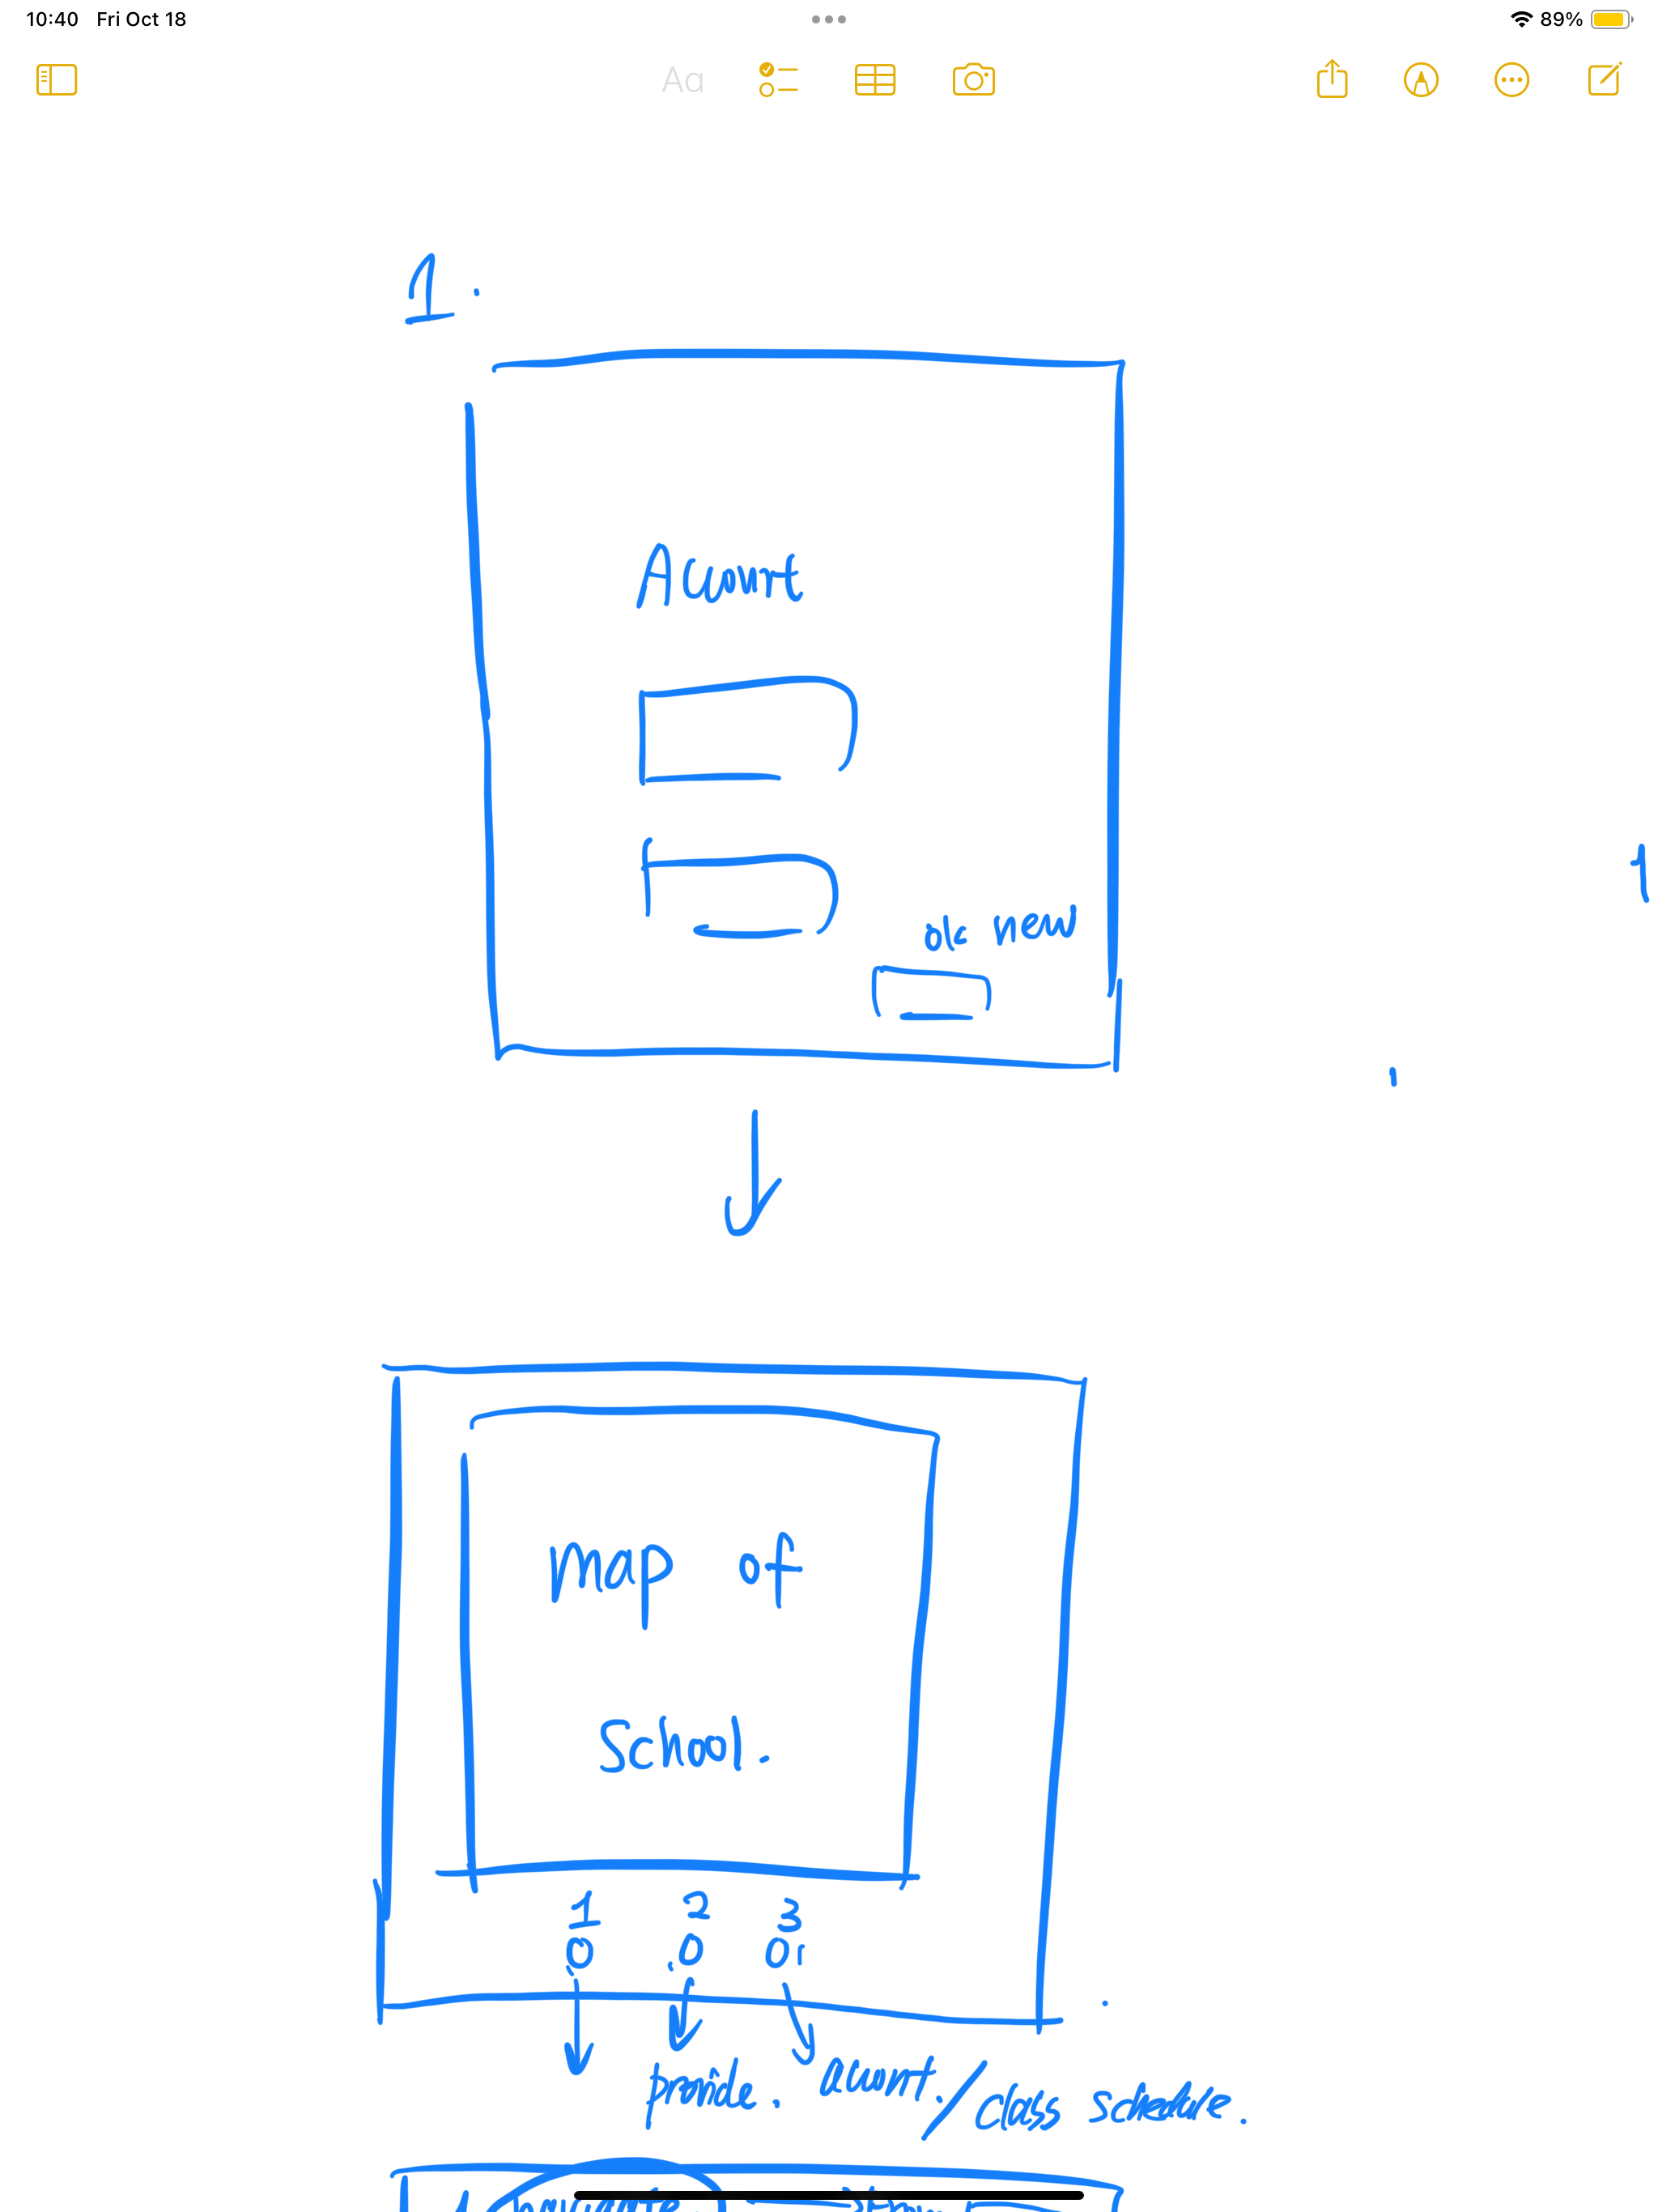 10:40 Fri Oct 18
89%
Aa
1.
Acount
ok new
1
map of
School.
1 2 3
acount. / class schedule.